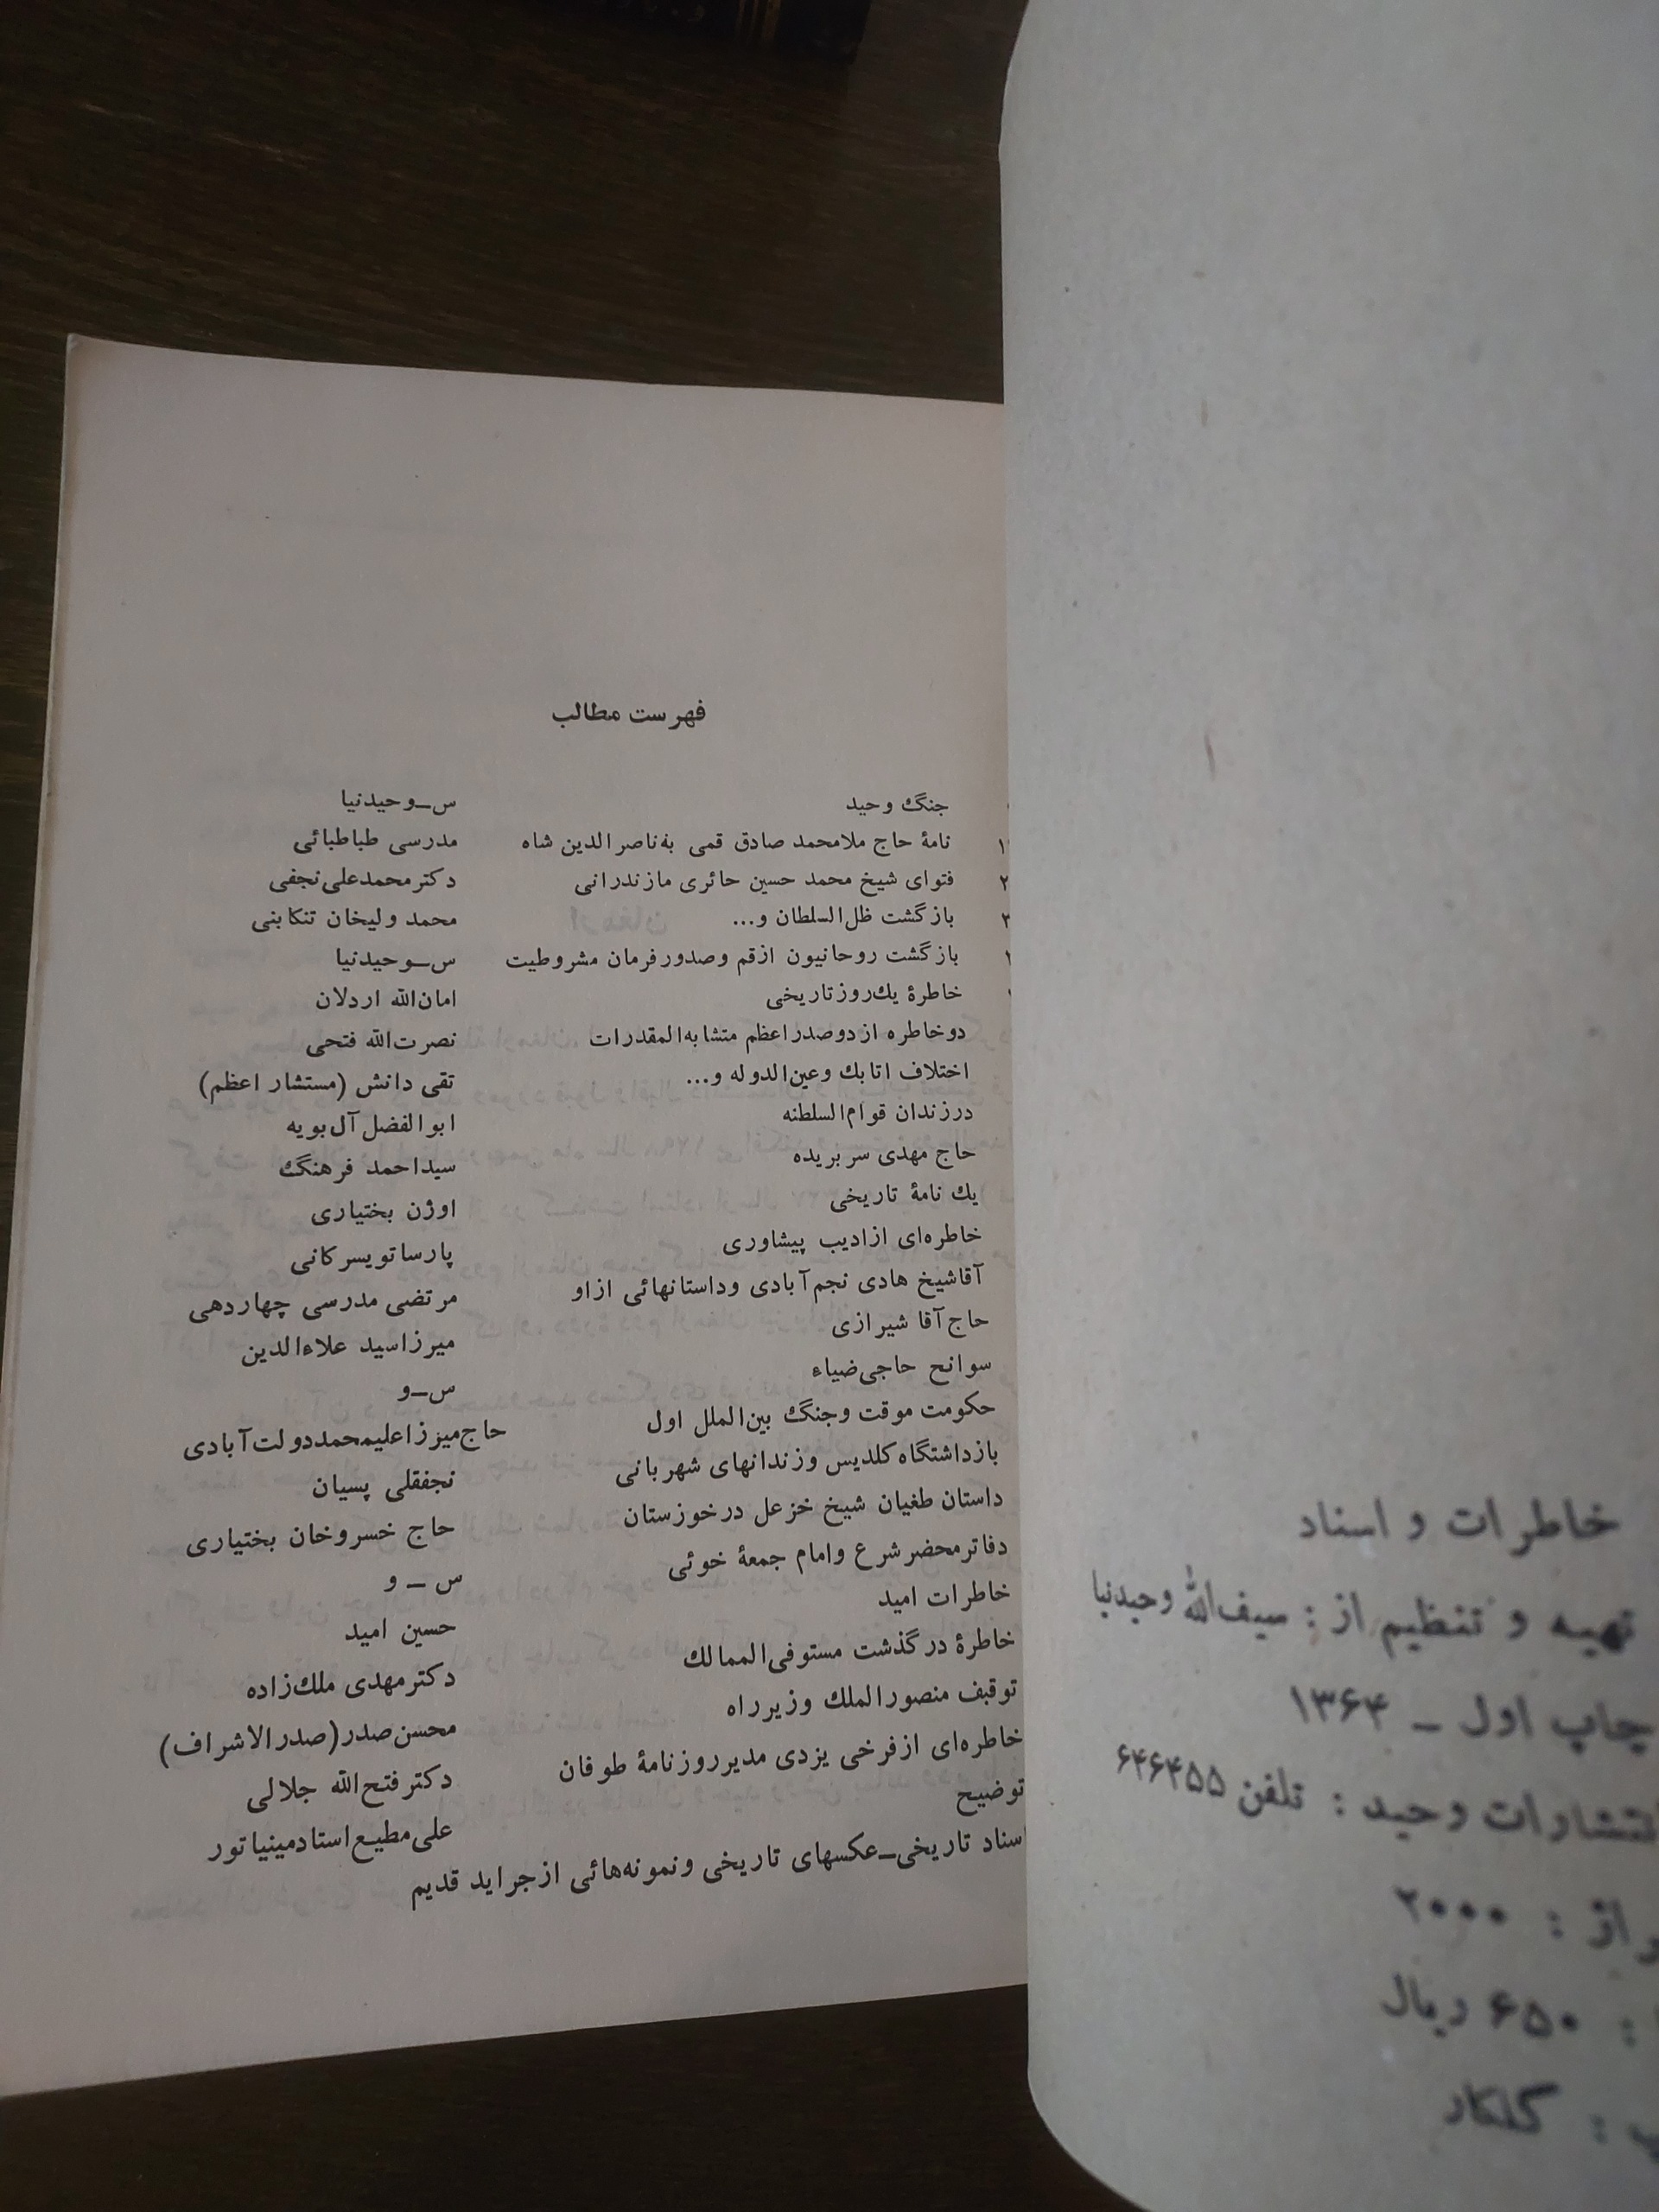 خاطرات و اسناد
تهیه و تنظیم از : سیف‌الله وحیدنیا
چاپ اول ــ ۱۳۶۴
انتشارات وحید : تلفن ۶۴۶۴۵۵
: ۲۰۰۰
: ۶۵۰ ریال
: گلکار
فهرست مطالب
جنگ وحید س‌ــ‌وحیدنیا
نامهٔ حاج ملامحمد صادق قمی به‌ناصرالدین شاه مدرسی طباطبائی
فتوای شیخ محمد حسین حائری مازندرانی دکترمحمدعلی‌نجفی
بازگشت ظل‌السلطان و... محمد ولیخان تنکابنی
بازگشت روحانیون ازقم وصدورفرمان مشروطیت س‌ــ‌وحیدنیا
خاطرهٔ یك‌روزتاریخی امان‌الله اردلان
دوخاطره ازدوصدراعظم متشابه‌المقدرات نصرت‌الله فتحی
اختلاف اتابك وعین‌الدوله و... تقی دانش (مستشار اعظم)
درزندان قوام‌السلطنه ابوالفضل آل‌بویه
حاج مهدی سربریده سیداحمد فرهنگ
یك نامهٔ تاریخی اوژن بختیاری
خاطره‌ای ازادیب پیشاوری پارساتویسرکانی
آقاشیخ هادی نجم‌آبادی وداستانهائی ازاو مرتضی مدرسی چهاردهی
حاج‌آقا شیرازی میرزاسید علاءالدین
سوانح حاجی‌ضیاء س‌ــ‌و
حکومت موقت وجنگ بین‌الملل اول حاج‌میرزاعلیمحمددولت‌آبادی
بازداشتگاه‌کلدیس وزندانهای شهربانی نجفقلی پسیان
داستان طغیان شیخ خزعل درخوزستان حاج خسروخان بختیاری
دفاترمحضرشرع وامام جمعهٔ خوئی س ــ و
خاطرات امید حسین امید
خاطرهٔ درگذشت مستوفی‌الممالك دکترمهدی ملك‌زاده
توقیف منصورالملك وزیرراه محسن‌صدر(صدرالاشراف)
خاطره‌ای ازفرخی یزدی مدیرروزنامهٔ طوفان دکترفتح‌الله جلالی
توضیح علی‌مطیع‌استادمینیاتور
اسناد تاریخی‌ــ‌عکسهای تاریخی ونمونه‌هائی ازجراید قدیم